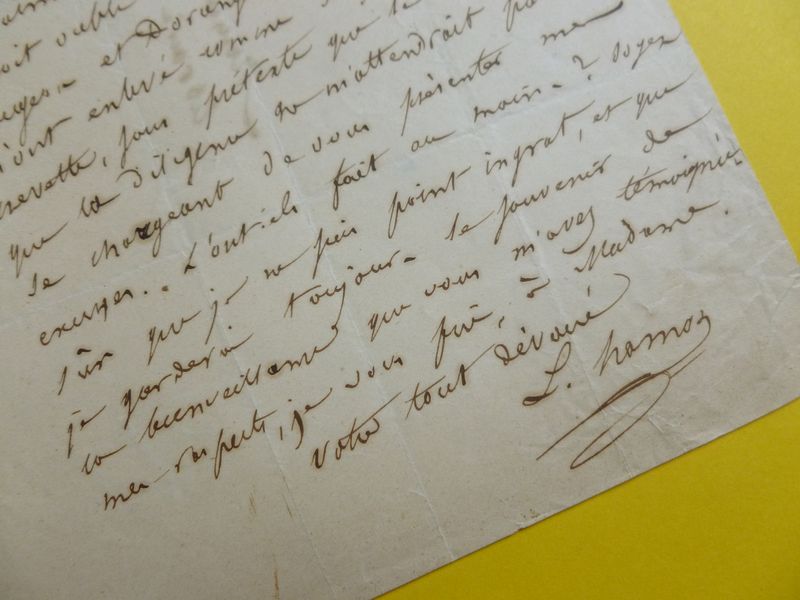 oublié
et
m'ont enlevé comme
sous prétexte que le
que la diligence ne m'attendrait pas
se chargeant de vous présenter mes
excuses.. L'ont-ils fait au moins? Soyez
sûr que je ne suis point ingrat, et que
je garderai toujours le souvenir de
la bienveillance que vous m'avez témoignée
mes respects, je vous prie, à Madame.
Votre tout dévoué
L. hamon